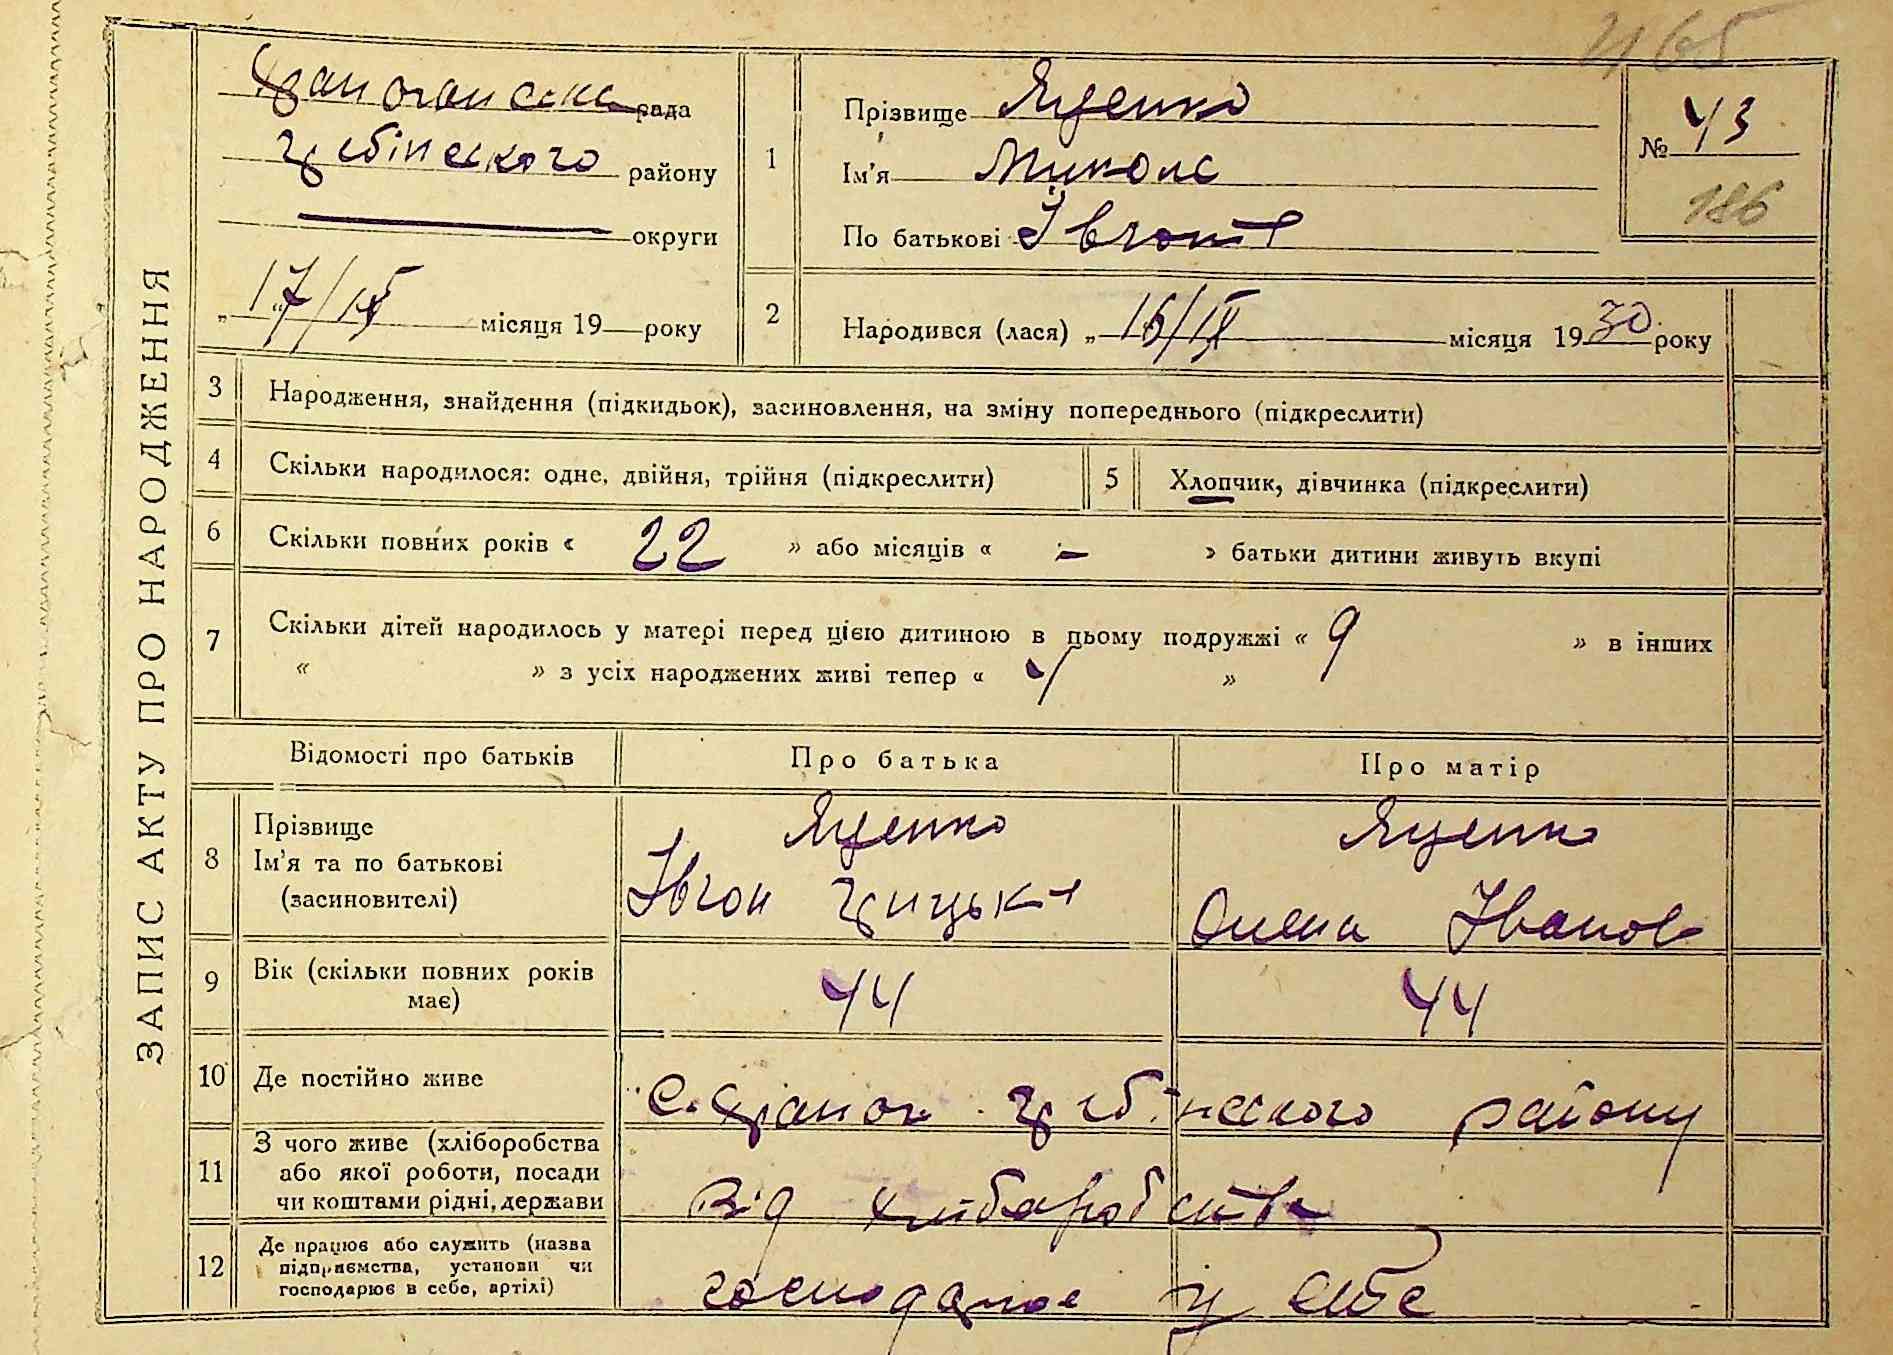 2165
ЗАПИС АКТУ ПРО НАРОДЖЕННЯ
рада
району
округи
„17/IX місяця 19 року
1
Прізвище Яценко
Ім'я Микола
По батькові
№ 43
186
2
Народився (лася) „16/IX місяця 1930 року
3 Народження, знайдення (підкидьок), засиновлення, на зміну попереднього (підкреслити)
4 Скільки народилося: одне, двійня, трійня (підкреслити)
5 Хлопчик, дівчинка (підкреслити)
6 Скільки повних років « 22 » або місяців « – » батьки дитини живуть вкупі
7 Скільки дітей народилось у матері перед цією дитиною в цьому подружжі « 9 » в інших
« » з усіх народжених живі тепер « 4 »
Відомості про батьків
Про батька
Про матір
8
Прізвище
Ім'я та по батькові
(засиновителі)
Яценко
Івгон Грицьк
Яценко
Олена Іванов
9
Вік (скільки повних років
має)
44
44
10 Де постійно живе
району
11
З чого живе (хліборобства
або якої роботи, посади
чи коштами рідні, держави
Від хліборобства
12
Де працює або служить (назва
підприємства, установи чи
господарює в себе, артілі)
господарює у себе